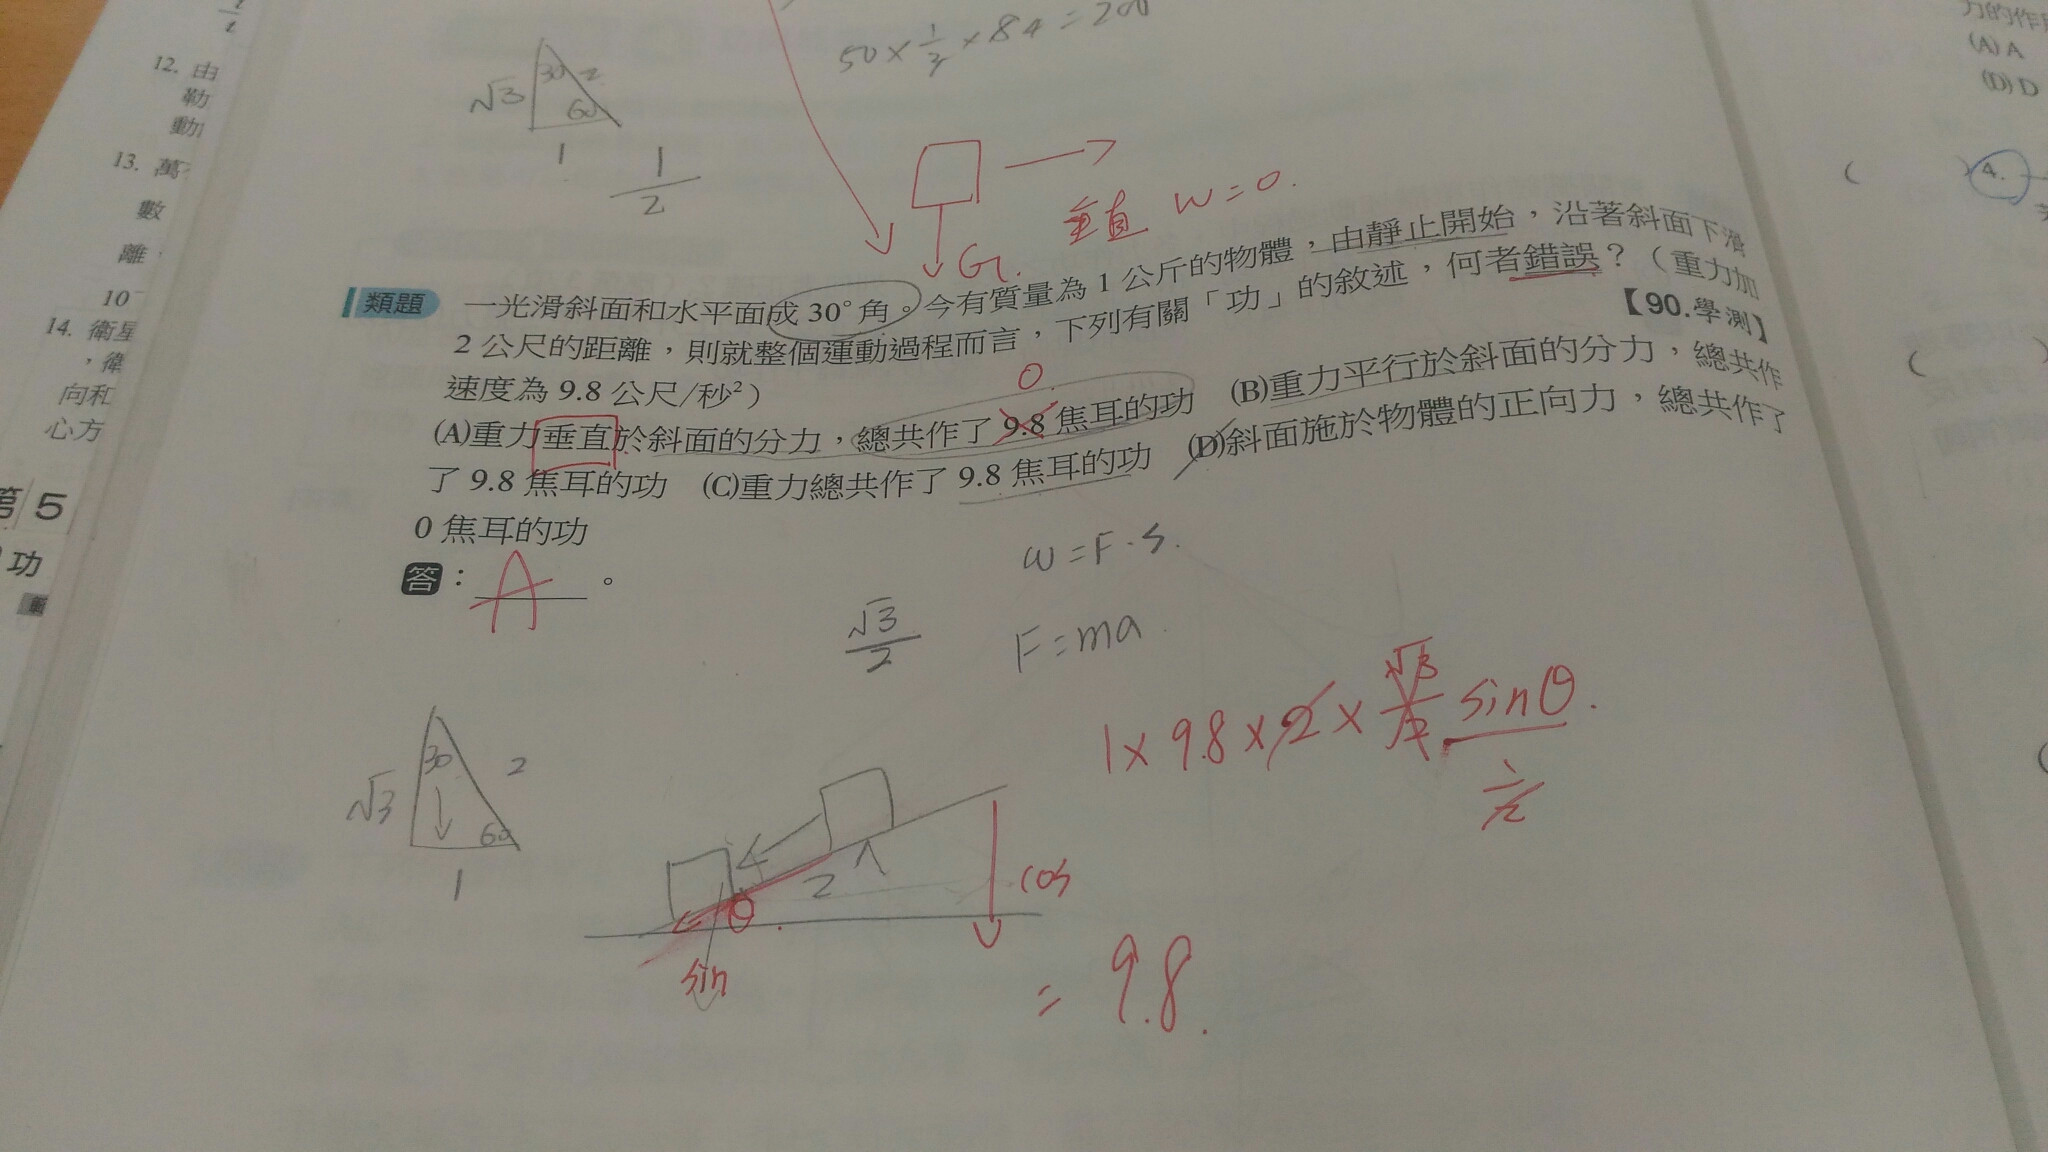 50 × 1/2 × 8
√3 30 2
60
1
1/2
12. 由
勒
動
13. 萬
數
離
10
14. 衛星
，衛
向和
心方
第 5
功
(A) A
(D) D
4.
垂直 W=0.
G.
類題 一光滑斜面和水平面成 30° 角。今有質量為 1 公斤的物體，由靜止開始，沿著斜面下滑
2 公尺的距離，則就整個運動過程而言，下列有關「功」的敘述，何者錯誤？（重力加
速度為 9.8 公尺/秒²） 【90.學測】
0.
(A)重力垂直於斜面的分力，總共作了 9.8 焦耳的功 (B)重力平行於斜面的分力，總共作
了 9.8 焦耳的功 (C)重力總共作了 9.8 焦耳的功 (D)斜面施於物體的正向力，總共作了
0 焦耳的功
答：A。
W=F·S.
√3/2
F=ma
1×9.8×2×√3/2 sinθ.
1/2
√3 30 2
60
1
2
θ.
sin
cos
= 9.8.